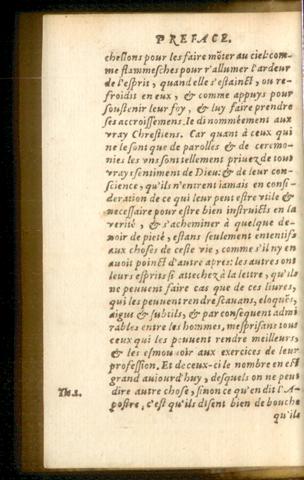 PREFACE.
chellons pour les faire mõter au ciel: com-
me flammesches pour r'allumer l'ardeur
de l'esprit, quand elle s'estainct, ou re-
froidis en eux, & comme appuys pour
soustenir leur foy, & luy faire prendre
ses accroissemens. Ie di nommeement aux
vray Chrestiens. Car quant à ceux qui
ne le sont que de parolles & de ceremo-
nies les vns sont tellement priuez de tout
vray sentiment de Dieu: & de leur con-
science, qu'ils n'entrent iamais en consi-
deration de ce qui leur peut estre vtile &
necessaire pour estre bien instruicts en la
verité, & s'acheminer à quelque de-
uoir de pieté, estans seulement ententifs
aux choses de ceste vie, comme s'il ny en
auoit poinct d'autre apres: les autres ont
leurs esprits si attechez à la lettre, qu'ils
ne peuuent faire cas que de ces liures,
qui les peuuent rendre scauans, eloquẽs,
aigus & subtils, & par consequent admi
rables entre les hommes, mesprisans tous
ceux qui les peuuent rendre meilleurs,
& les esmouuoir aux exercices de leur
profession. Et de ceux-ci le nombre en est
grand auiourd'huy, desquels on ne peut
Tit. 1. dire autre chose, sinon ce qu'en dit l'A-
postre, c'est qu'ils disent bien de bouche
qu'ils